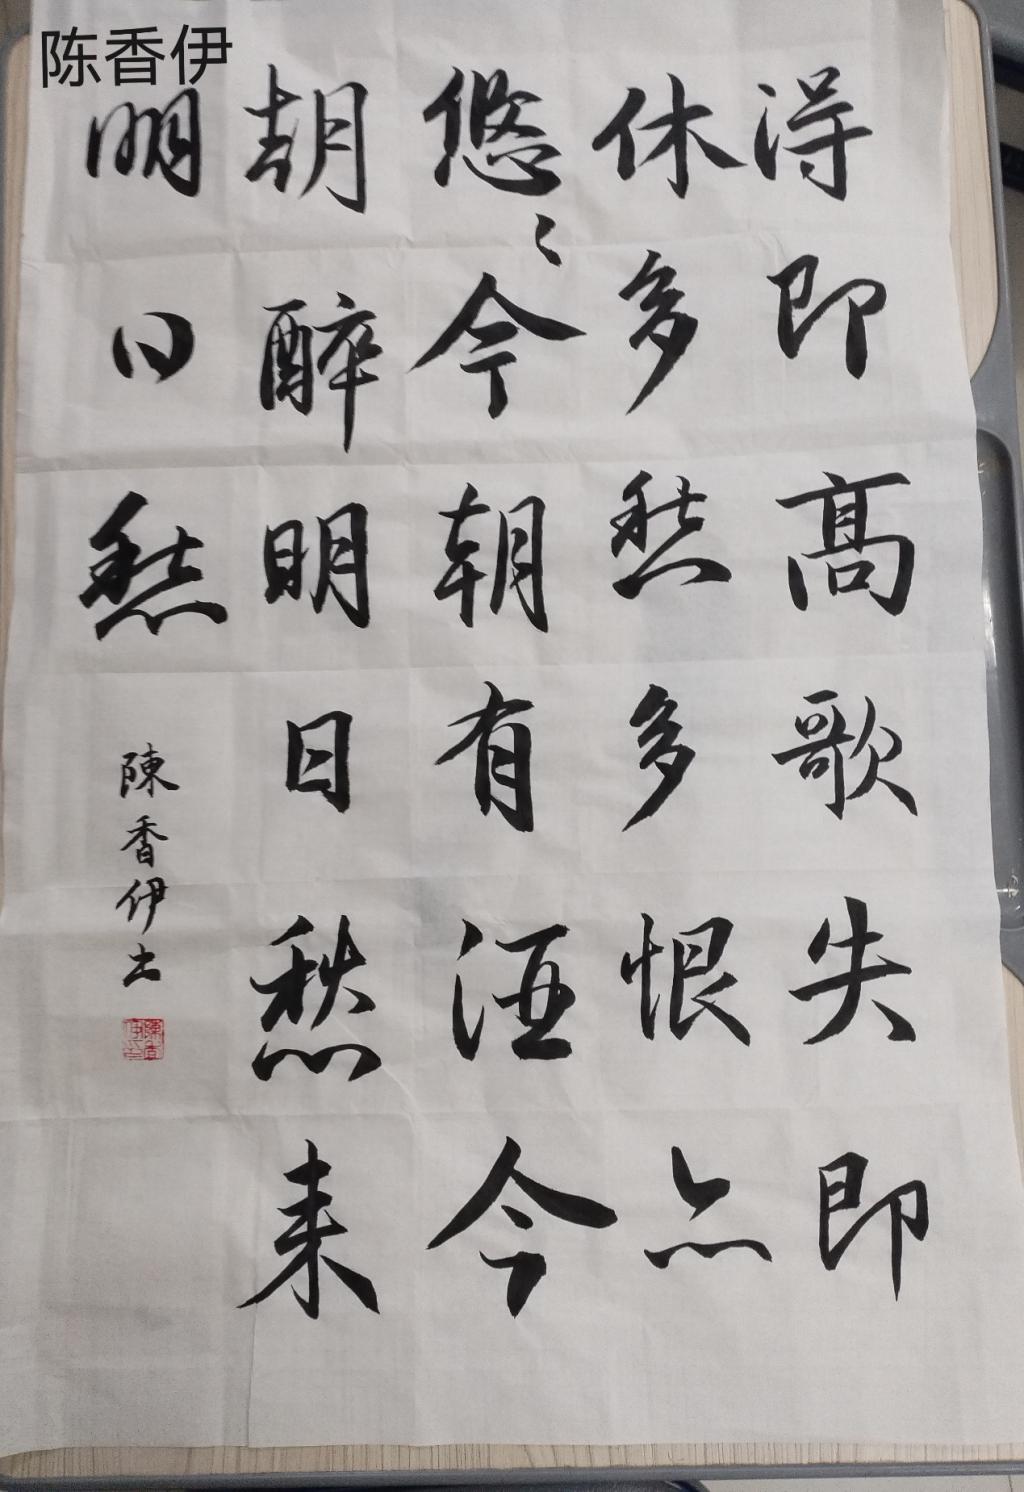 陈香伊
得即高歌失即
休多愁多恨亦
悠〻今朝有酒今
朝醉明日愁来
明日愁
陳香伊书